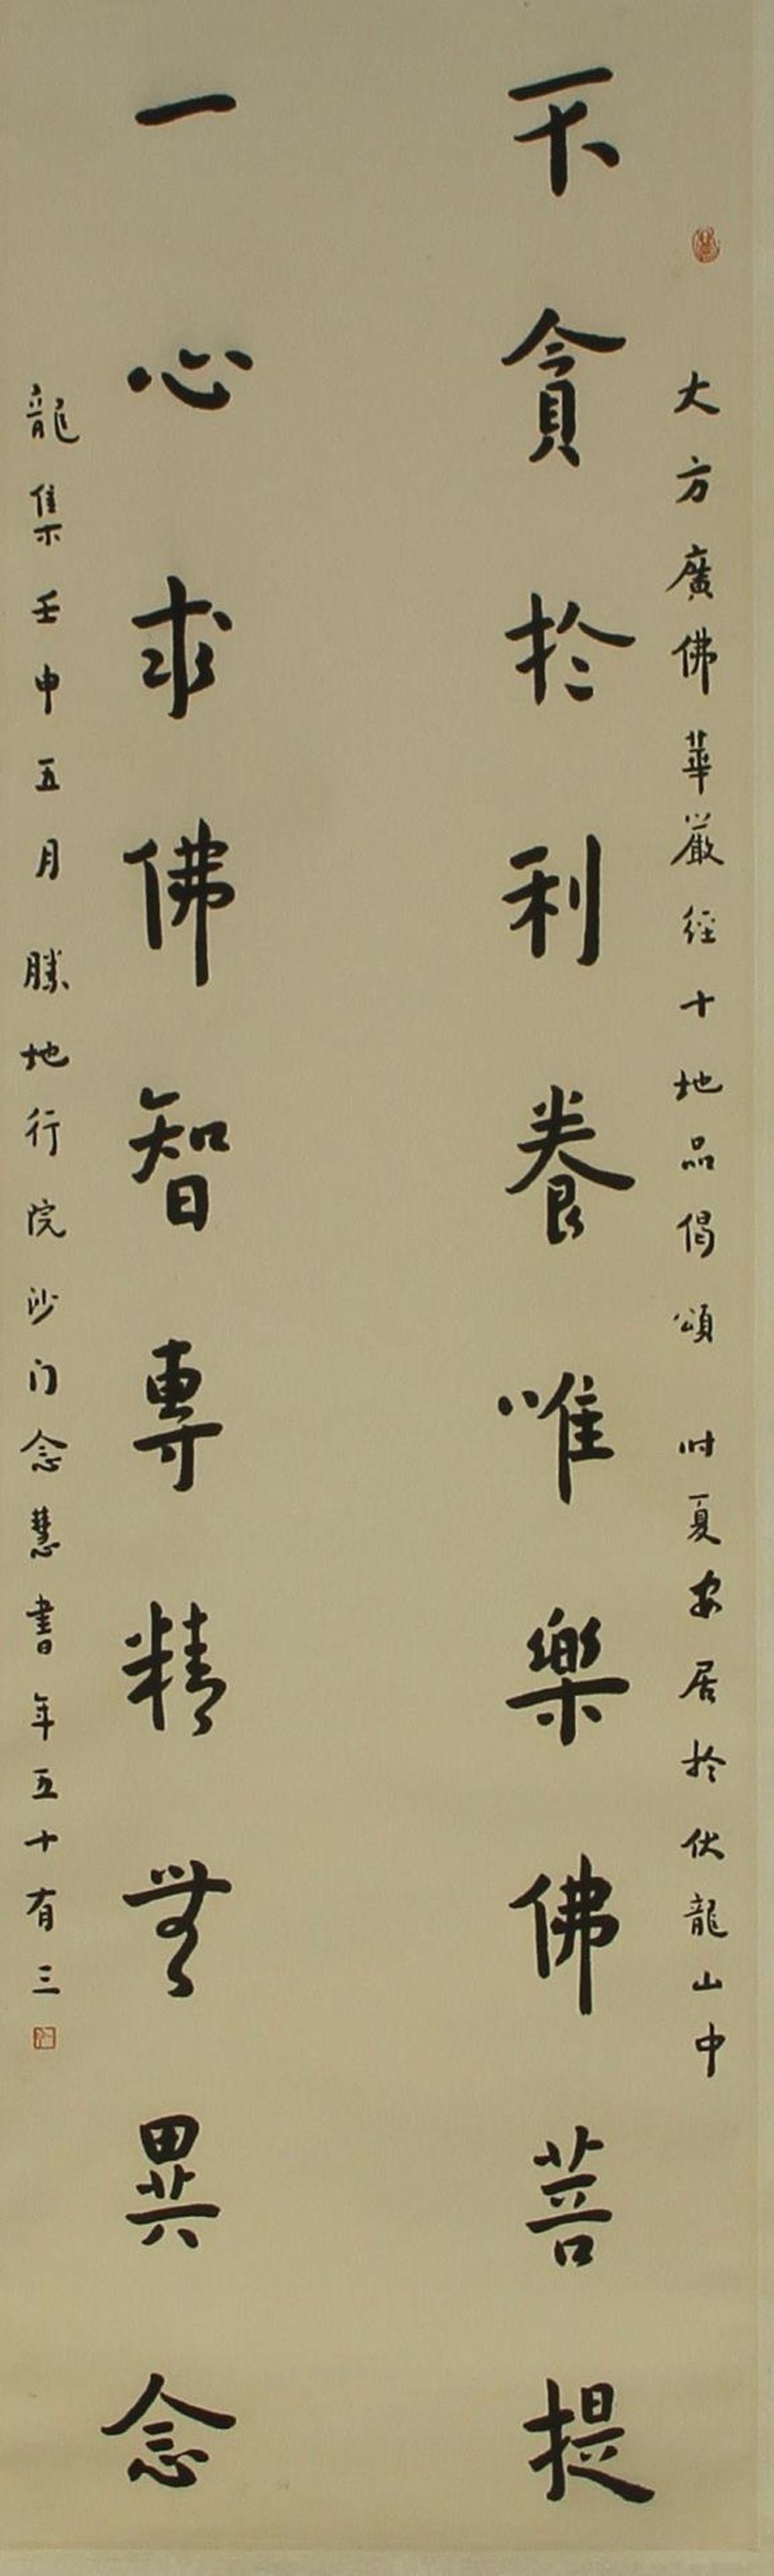 大方廣佛華嚴經十地品偈頌 时夏安居於伏龍山中
不貪於利養唯樂佛菩提
一心求佛智專精無異念
龍集壬申五月勝地行院沙门念慧書年五十有三